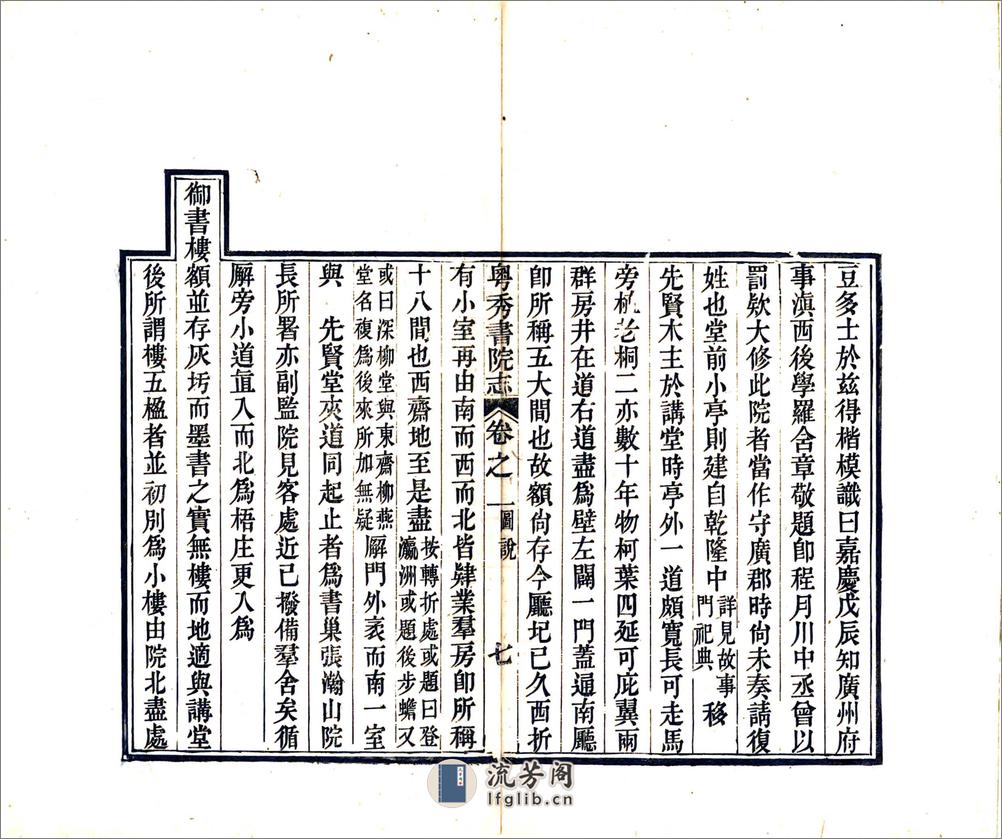 豆多士於茲得楷模識曰嘉慶戊辰知廣州府
事滇西後學羅含章敬題卽程月川中丞曾以
罰欵大修此院者當作守廣郡時尙未奏請復
姓也堂前小亭則建自乾隆中詳見故事門祀典移
先賢木主於講堂時亭外一道頗寬長可走馬
旁桄老桐二亦數十年物柯葉四延可庇翼兩
群房井在道右道盡爲壁左闢一門蓋通南廳
卽所稱五大間也故額尙存今廳圮已久西折
粵秀書院志 卷之一 圖說 七
有小室再由南而西而北皆肄業羣房卽所稱
十八間也西齋地至是盡按轉折處或題曰登瀛洲或題後步蟾又
或曰深柳堂與東齋柳燕堂名複爲後來所加無疑廨門外袤而南一室
與 先賢堂夾道同起止者爲書巢張瀚山院
長所署亦副監院見客處近已撥備羣舍矣循
廨旁小道直入而北爲梧庄更入爲
御書樓額並存灰圬而墨書之實無樓而地適與講堂
後所謂樓五楹者並初別爲小樓由院北盡處
流芳阁
lfglib.cn